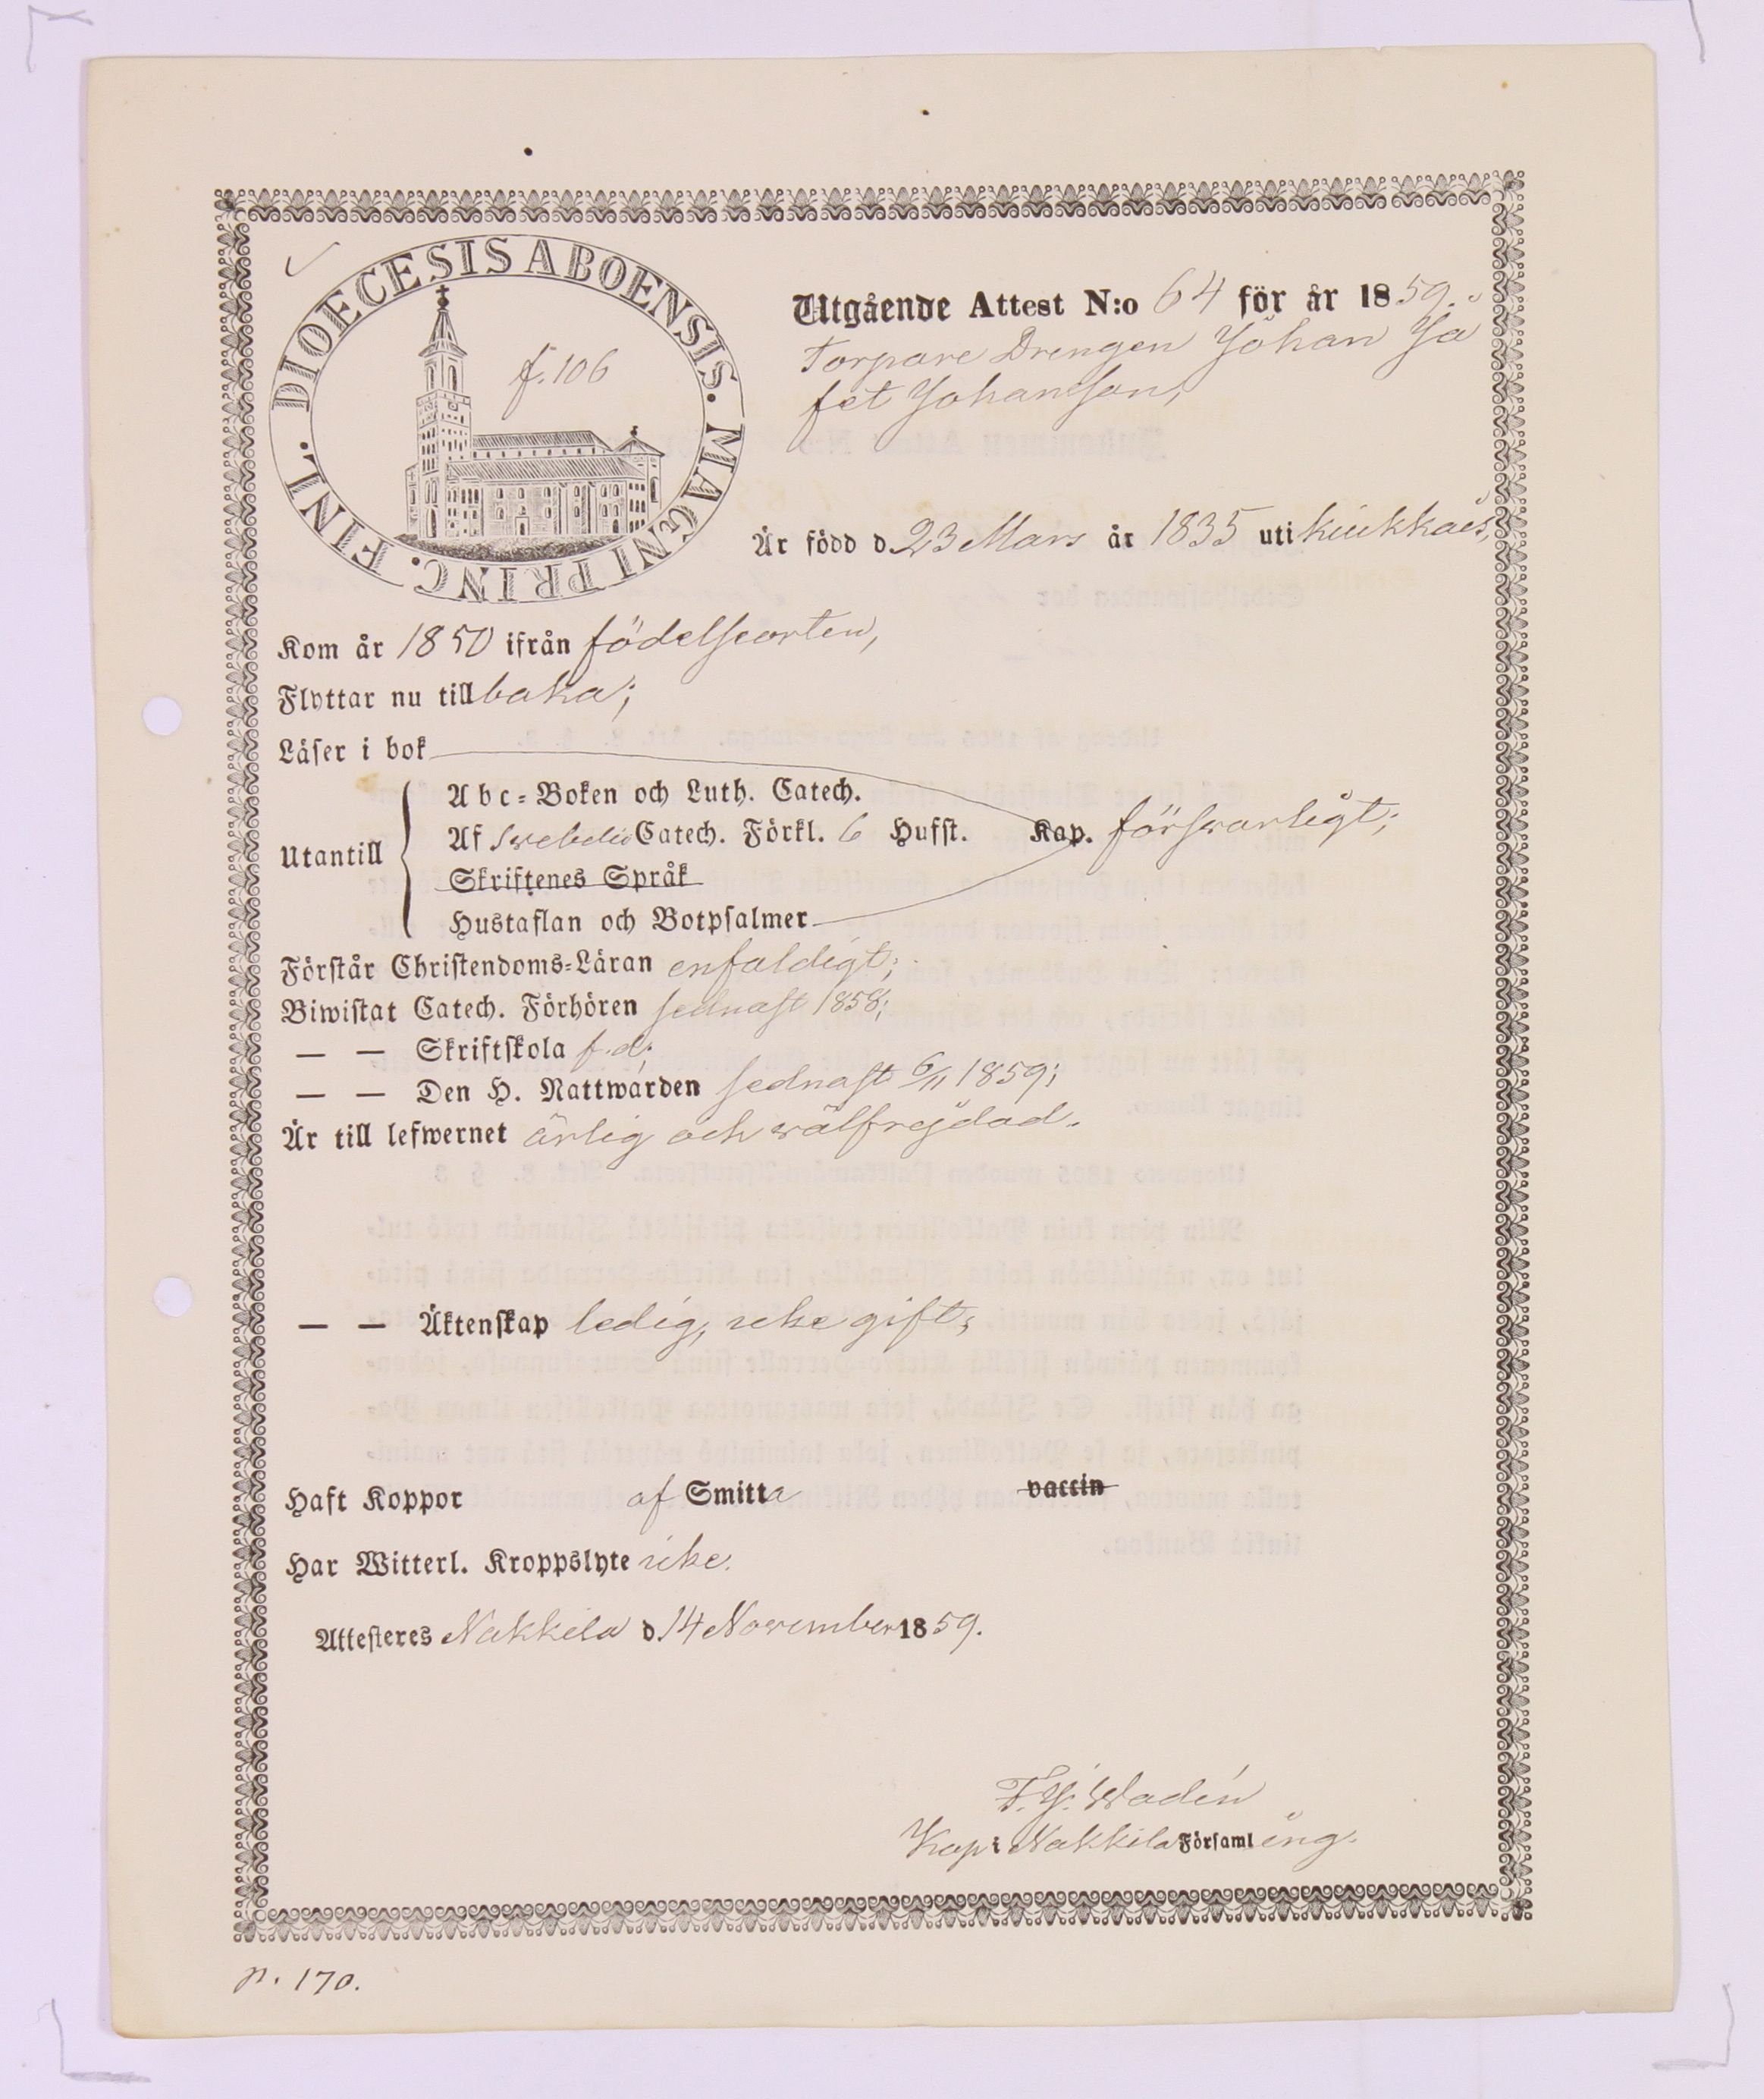 DIOECESIS ABOENSIS. MAGNI PRINC. FINL.
f. 106
Utgående Attest N:o 64 för år 1859.
Torpare Drengen Johan Ja
fet Johansson,
Är född d 23 Mars år 1835 uti Kiukkais,
Kom år 1850 ifrån födelseorten,
Flyttar nu tillbaka;
Läser i bok
Utantill
Abc-Boken och Luth. Catech.
Af Swebelii Catech. Förkl. 6 Hufst. Kap. försvarligt;
Skriftenes Språk
Hustaflan och Botpsalmer
Förstår Christendoms-Läran enfaldigt;
Biwistat Catech. Förhören sednast 1858;
— — Skriftskola f.d;
— — Den H. Nattwarden sednast 6/11 1859;
Är till lefwernet ärlig och välfrejdad.
— — Äktenskap ledig, icke gift;
Haft Koppor af Smitta vaccin
Har Witterl. Kroppslyte icke.
Attesteres Nakkila d. 14 November 1859.
F. J. Wadén
Kap i Nakkila Församling.
p. 170.